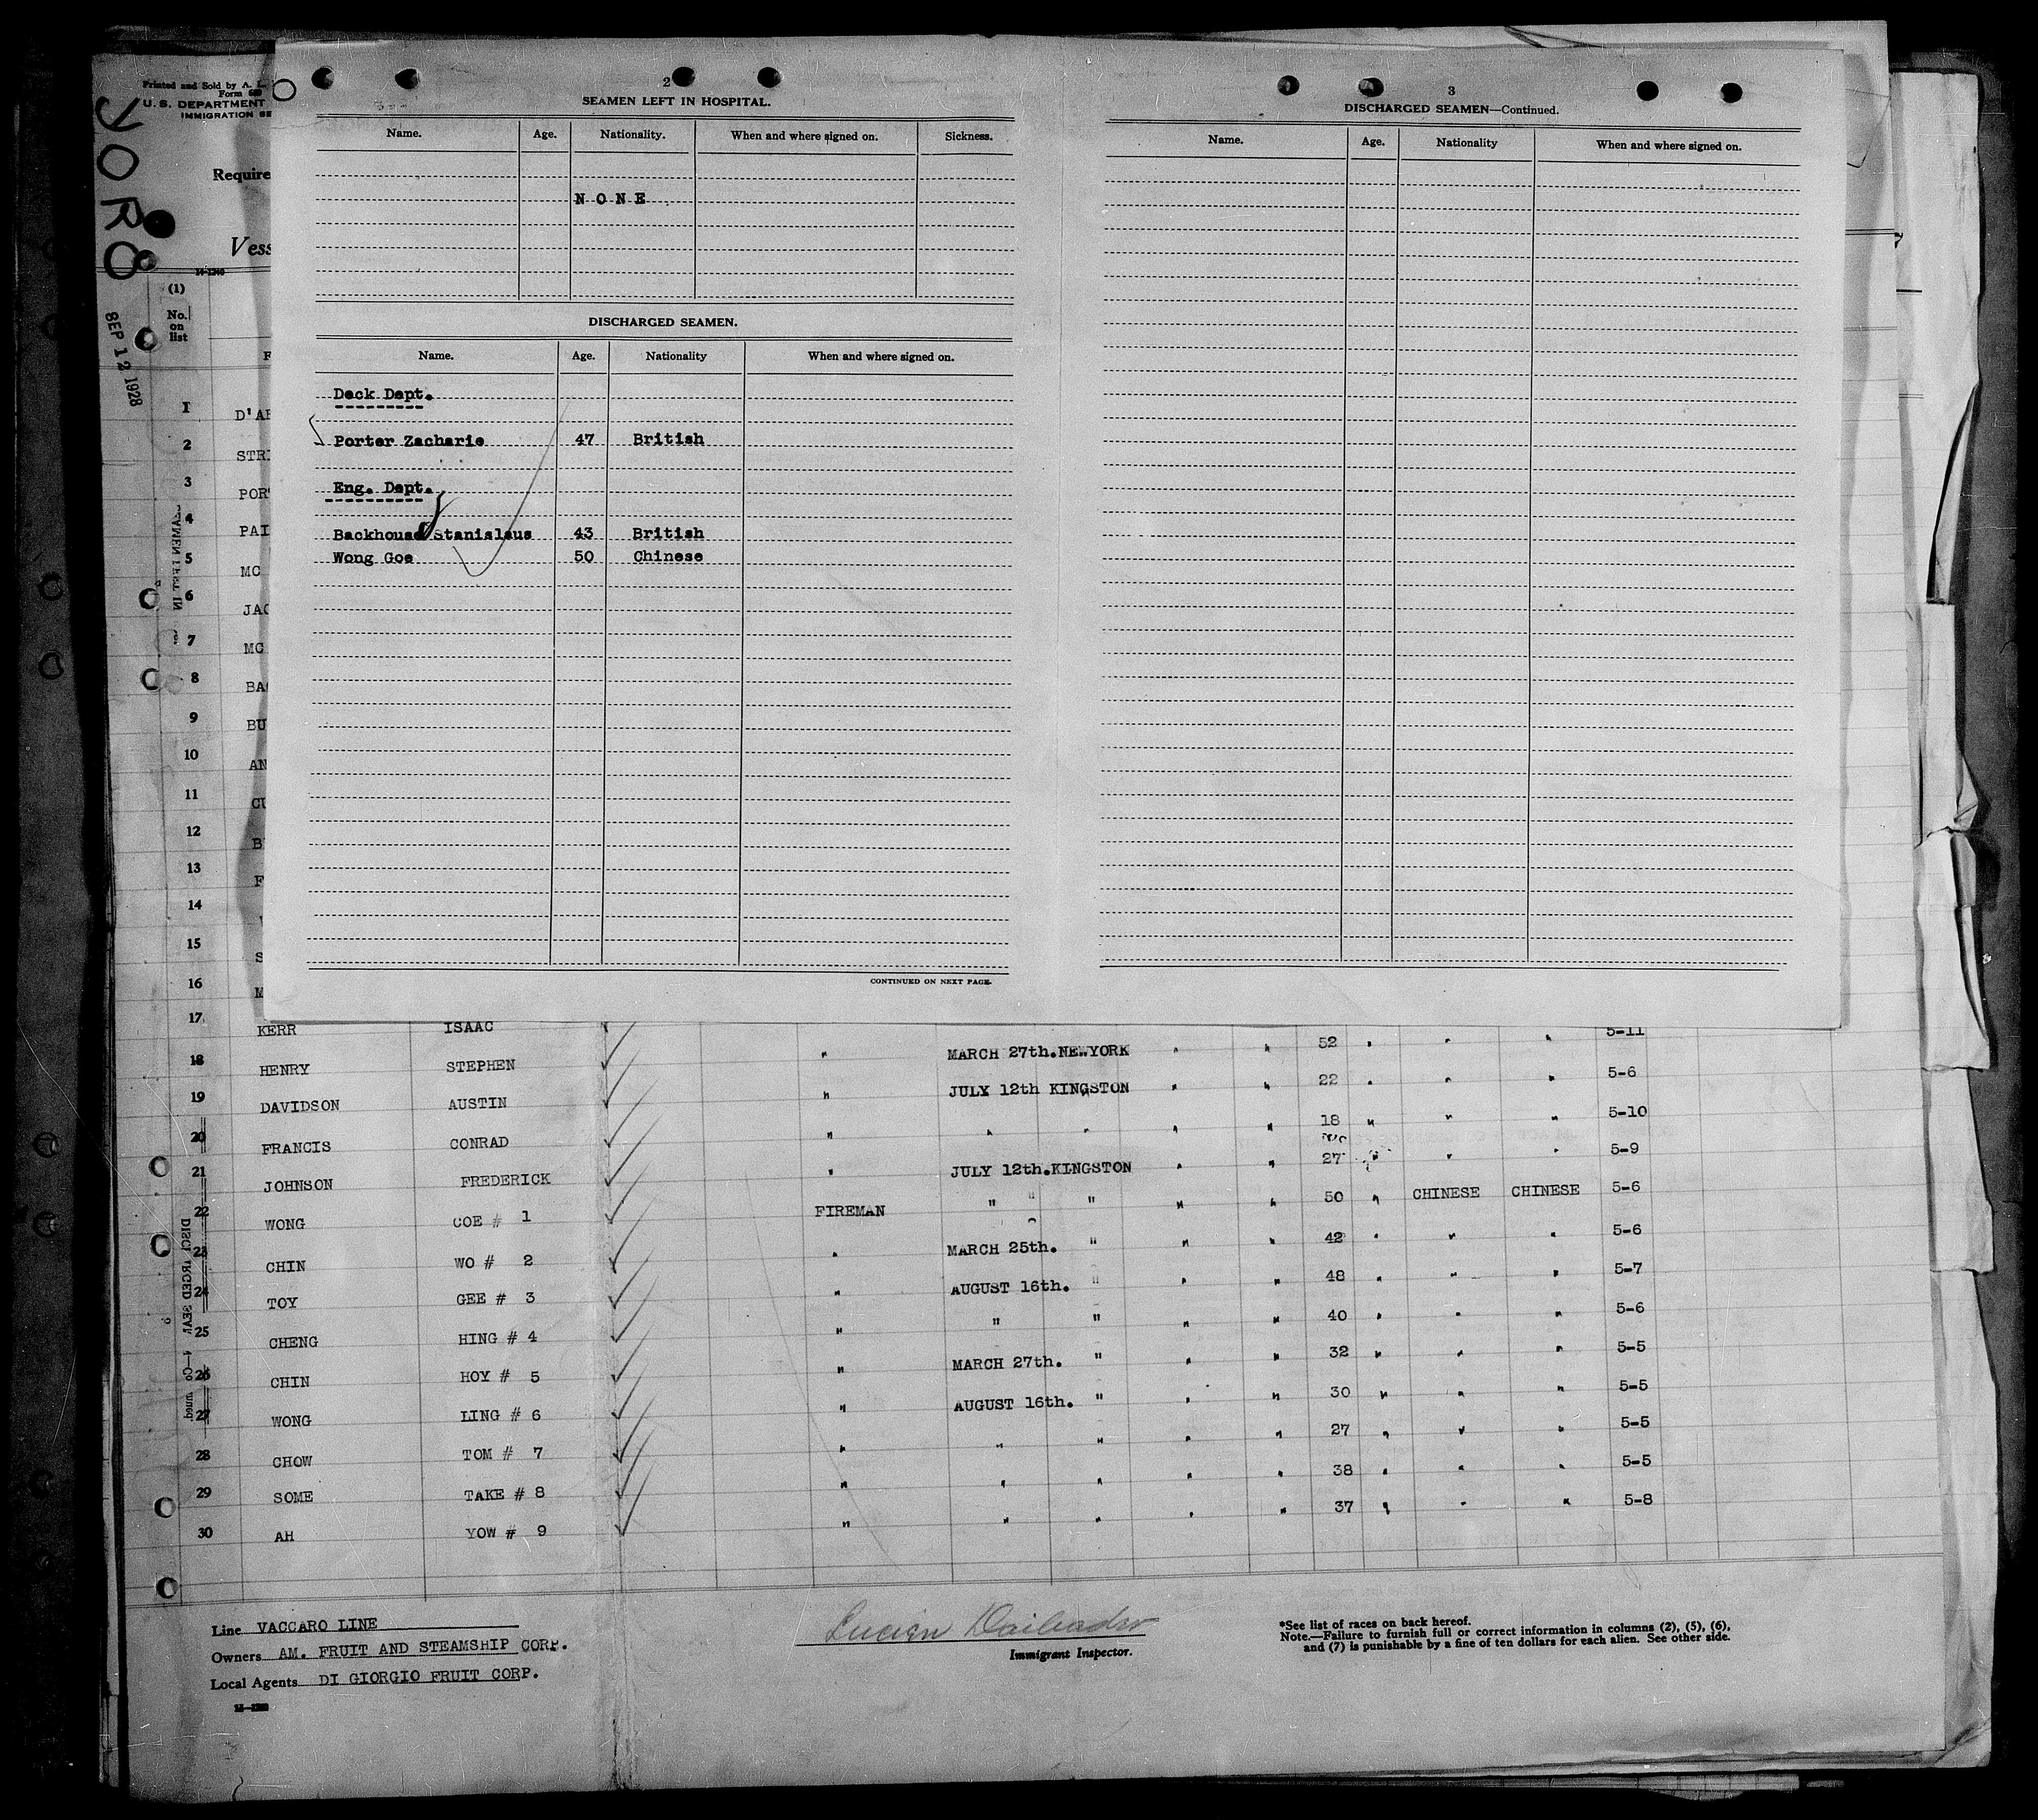 Printed and Sold by A. L.
Form 680
U. S. DEPARTMENT
IMMIGRATION SE
YORO
SEP 12 1928
Require
Vess
(1)
No. on list
2
SEAMEN LEFT IN HOSPITAL.
Name. Age. Nationality. When and where signed on. Sickness.
NONE
DISCHARGED SEAMEN.
Name. Age. Nationality When and where signed on.
Deck Dept.
Porter Zacharie 47 British
Eng. Dept.
Backhouse Stanislaus 43 British
Wong Goe 50 Chinese
CONTINUED ON NEXT PAGE.
3
DISCHARGED SEAMEN—Continued.
Name. Age. Nationality When and where signed on.
1 D'AR
2 STRI
3 PORT
4 PAI
5 MC
6 JAC
7 MC
8 BAC
9 BU
10 AN
11 CU
12 B
13 F
14
15 S
16 M
17 KERR ISAAC 5-11
18 HENRY STEPHEN " MARCH 27th. NEWYORK " " 52 " " " 5-6
19 DAVIDSON AUSTIN " JULY 12th KINGSTON " " 22 " " " 5-10
20 FRANCIS CONRAD " " " " " 18 " " " 5-9
21 JOHNSON FREDERICK " JULY 12th. KINGSTON " " 27 " " "
22 WONG COE # 1 FIREMAN " " " " " 50 " CHINESE CHINESE 5-6
23 CHIN WO # 2 " MARCH 25th. " " " 42 " " " 5-6
24 TOY GEE # 3 " AUGUST 16th. " " " 48 " " " 5-7
25 CHENG HING # 4 " " " " " 40 " " " 5-6
26 CHIN HOY # 5 " MARCH 27th. " " " 32 " " " 5-5
27 WONG LING # 6 " AUGUST 16th. " " " 30 " " " 5-5
28 CHOW TOM # 7 " " " " " 27 " " " 5-5
29 SOME TAKE # 8 " " " " " 38 " " " 5-5
30 AH YOW # 9 " " " " " 37 " " " 5-8
Line VACCARO LINE
Owners AM. FRUIT AND STEAMSHIP CORP.
Local Agents DI GIORGIO FRUIT CORP.
Lucien
Immigrant Inspector.
*See list of races on back hereof.
Note.—Failure to furnish full or correct information in columns (2), (5), (6),
and (7) is punishable by a fine of ten dollars for each alien. See other side.